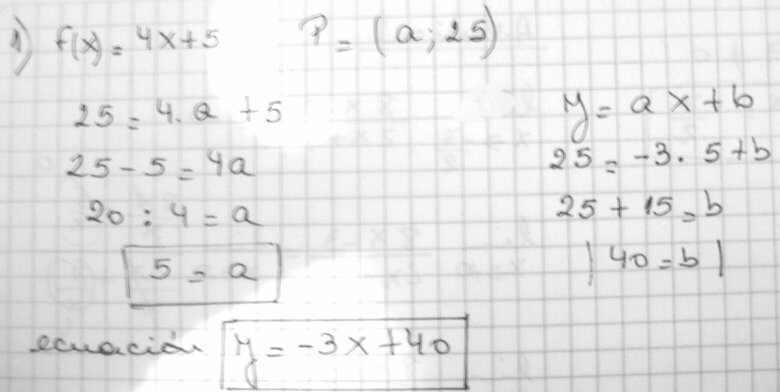 1) f(x) = 4x+5 P = (a; 25)
25 = 4. a + 5
25 - 5 = 4a
20 : 4 = a
5 = a
y = a x + b
25 = -3. 5 + b
25 + 15 = b
| 40 = b |
ecuación y = -3x + 40